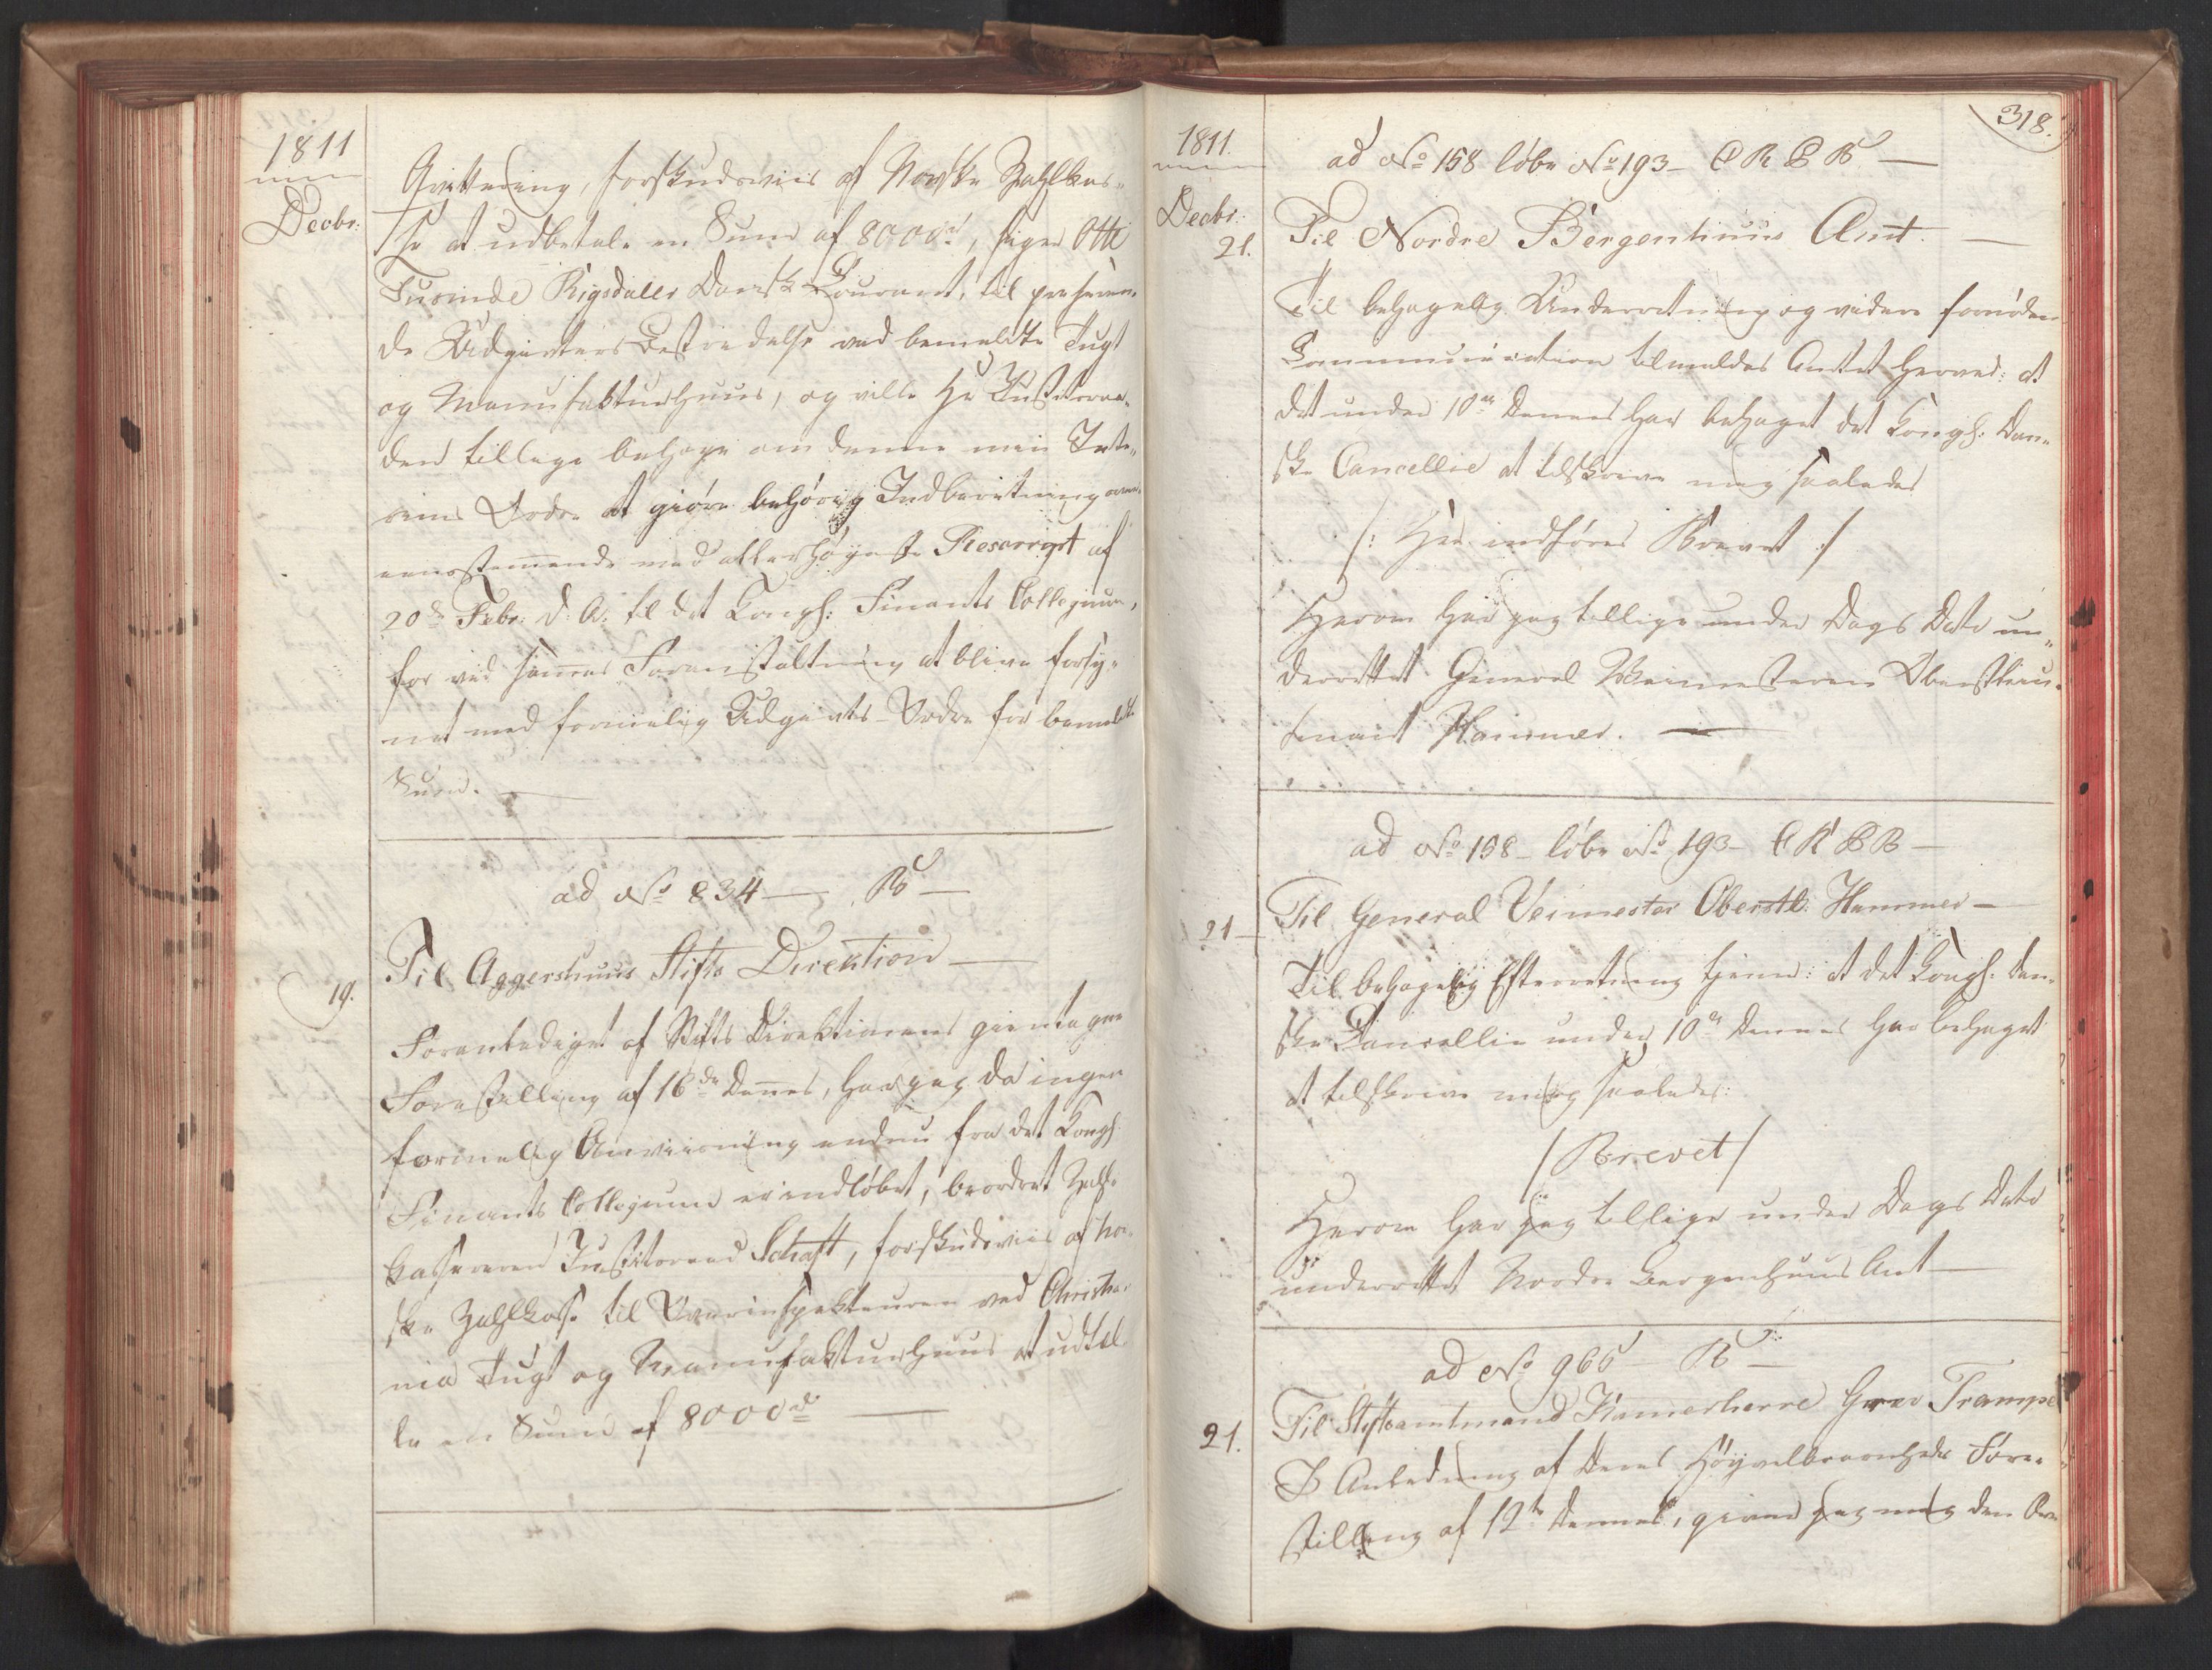 1811
Decbr:
Qvittering, forskudsviis af Norske Zahlkas-
se at udbetale en Sum af 8000rd, siger Otte
Tusinde Rigsdaler Dansk Courant, til
de Udgivters Bestridelse ved bemeldte Tugt
og Manufakturhuus, og ville Hr Justitsraa-
den tillige behage om denne min Inte-
rims Ordre at giøre behørig Indberetning over-
eensstemende med allerhøyeste Rescript af
20de Febr: d: A: til det Kongl: Finants Collegium,
for ved sammes Foranstaltning at blive forsy-
net med formelig Udgivts-Ordre for bemeldte
Sum. —
ad No 834 — B —
19.
Til Aggershuus Stifts Direktion —
Foranlediget af Stifts Direktionens gientagne
Forestilling af 16de dennes, har jeg da ingen
formelig Anviisning endnu fra det Kongl
Finants Collegium er indløbet, beordret Zahl-
kasserer Justitsraad Schaft, forskudsviis af Nor-
ske Zahlkasse til Overinspekteuren ved Christia-
nia Tugt og Manufakturhuus at udtel-
le en Sum af 8000rd —
318.
1811.
Decbr:
21.
ad No 158 løbe No 193 — C R B B —
Til Nordre Bergenhuus Amt. —
Til behagelig Underretning og videre fornøden
Communication tilmeldes Amtet herved: at
det under 10de dennes har behaget det Kongl: Dan-
ske Cancellie at tilskrive mig saaledes
/: Her indføres Brevet :/
Herom har jeg tillige under Dags Dato un-
derrettet General Veimesteren Oberstlieu-
tenant Hammer. —
ad No 158 — løbe No 193 — C R B B —
21 —
Til General Veimester Oberstl: Hammer —
Til behagelig Efterretning tjener: at det Kongl: dan-
ske Cancellie under 10de dennes har behaget
at tilskrive mig saaledes:
/ Brevet /
Herom har jeg tillige under Dags Dato
underrettet Nordre Bergenhuus Amt —
ad No 966 — B —
21.
Til Stiftsamtmand Kamerherre Grev Trampe
I Anledning af Deres Høyvelbaarenheds Fore-
stilling af 12te dennes, giver jeg mig den